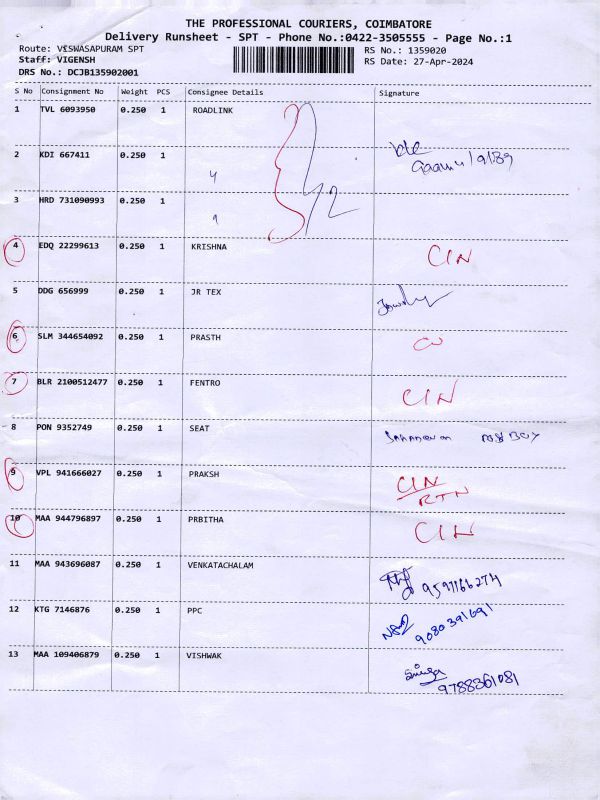 THE PROFESSIONAL COURIERS, COIMBATORE
Delivery Runsheet - SPT - Phone No.:0422-3505555 - Page No.:1
Route: VISWASAPURAM SPT RS No.: 1359020
Staff: VIGENSH RS Date: 27-Apr-2024
DRS No.: DCJB135902001
S No Consignment No Weight PCS Consignee Details Signature
1 TVL 6093950 0.250 1 ROADLINK
2 KDI 667411 0.250 1
3 HRD 731090993 0.250 1
4 EDQ 22299613 0.250 1 KRISHNA CIN
5 DDG 656999 0.250 1 JR TEX
6 SLM 344654092 0.250 1 PRASTH
7 BLR 2100512477 0.250 1 FENTRO CIN
8 PON 9352749 0.250 1 SEAT
9 VPL 941666027 0.250 1 PRAKSH CIN
RTN
10 MAA 944796897 0.250 1 PRBITHA CIN
11 MAA 943696087 0.250 1 VENKATACHALAM 9597166274
12 KTG 7146876 0.250 1 PPC 9080391691
13 MAA 109406879 0.250 1 VISHWAK 9788361081